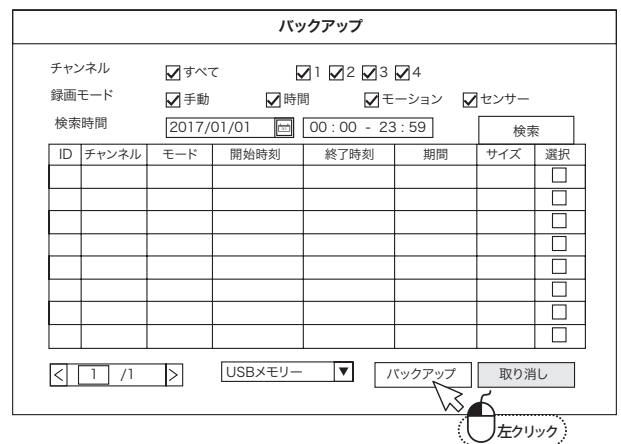 バックアップ
チャンネル すべて 1 2 3 4
録画モード 手動 時間 モーション センサー
検索時間 2017/01/01 00 : 00 - 23 : 59 検索
ID チャンネル モード 開始時刻 終了時刻 期間 サイズ 選択
< 1 /1 > USBメモリー ▼ バックアップ 取り消し
左クリック